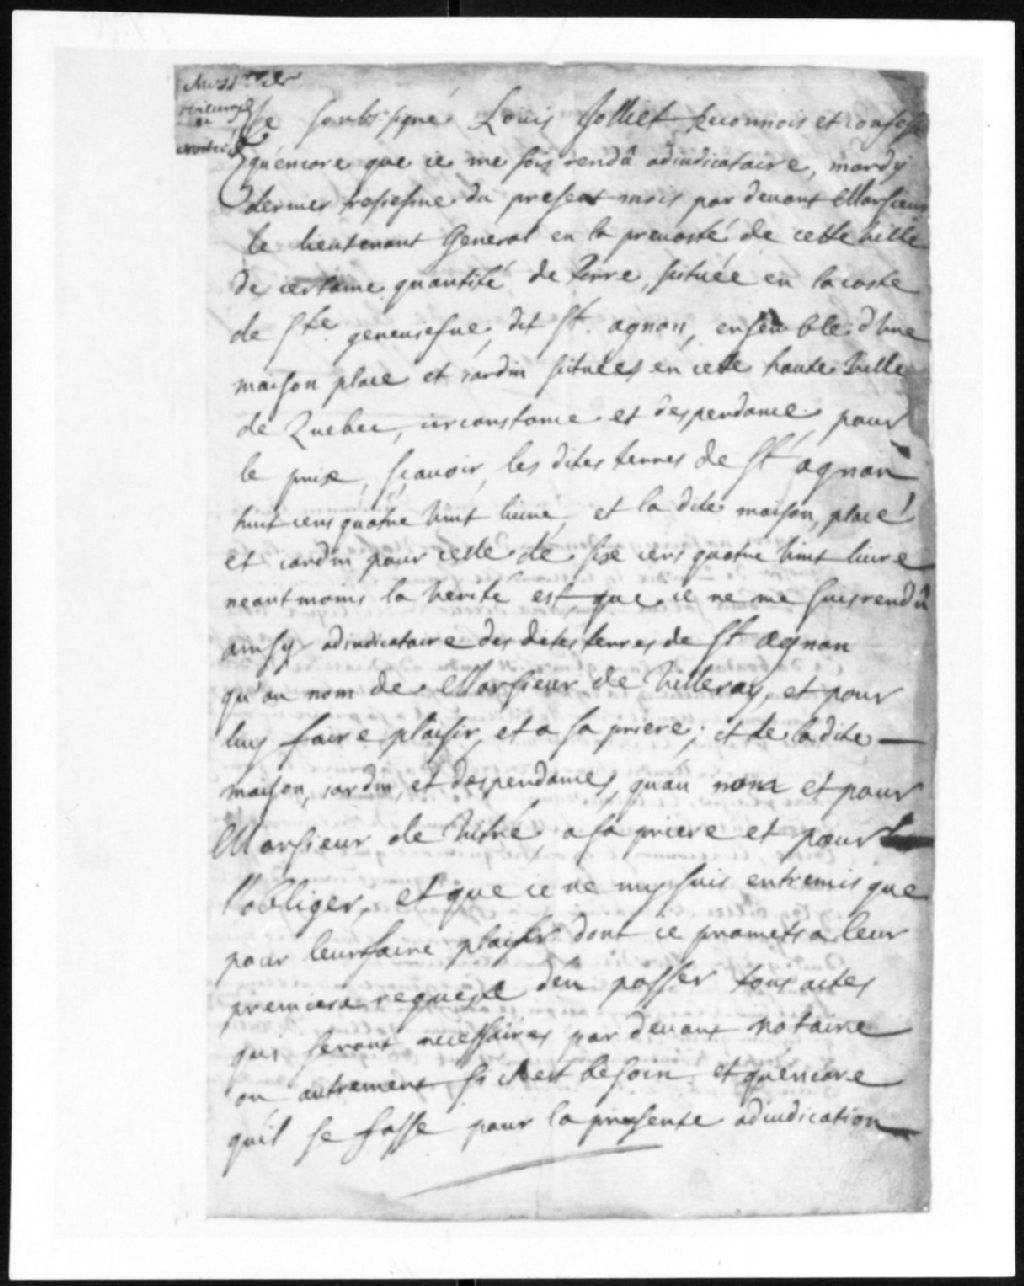 Je soubs signé Louis Jolliet Reconnois et confesse
qu'encore que ie me sois rendû adiudicataire, mardy
dernier trosiesme du present mois par devant Monsieur
le lieutenant General en la prevosté de cette ville
de certaine quantité de terre, située en la coste
de Ste genevieſve, dit St. agnan, ensemble d'une
maison place et iardin situées en cette haute ville
de Quebec, circonstance et despendance, pour
le prix, sçavoir, les dites terres de St agnan
huit cens quatre vint livre, et la dite maison, place
et iardin pour celle de six cens quatre vint livre
neantmoins la verité est que ie ne me suis rendû
ainsy adiudicataire des dites terres de St agnan
qu'au nom de Monsieur de Villeray, et pour
luy faire plaisir, et a sa priere; et de la dite
maison, iardin, et despendances, quau nom et pour
Monsieur de Vitré a sa priere et pour
l'obliger, et que ie ne my suis entremis que
pour leur faire plaisir dont ie promets a leur
premiere requeste d'en passer tous actes
qui seront necessaires par devant notaire
ou autrement si il est besoin, et quencore
qu'il se fasse pour la presente adiudication